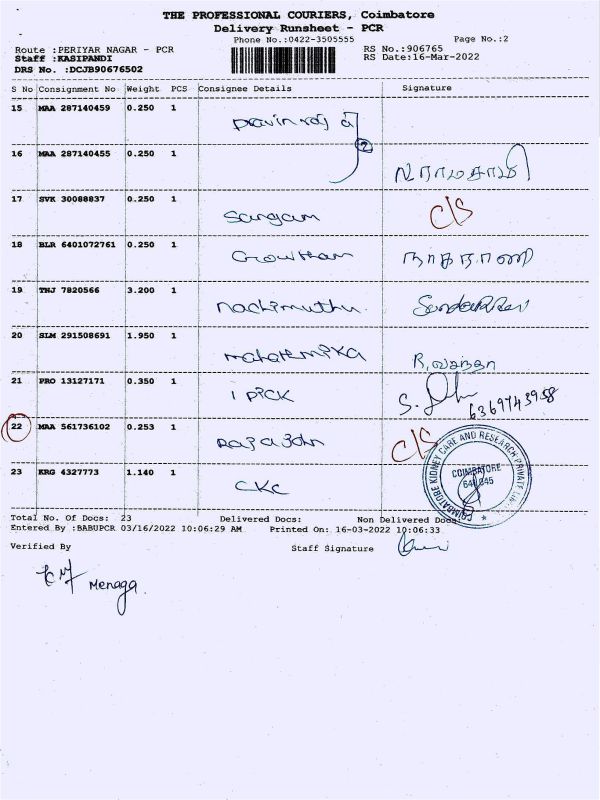 THE PROFESSIONAL COURIERS, Coimbatore
Delivery Runsheet - PCR
Phone No.:0422-3505555 Page No.:2
Route :PERIYAR NAGAR - PCR RS No.:906765
Staff :KASIPANDI RS Date:16-Mar-2022
DRS No. :DCJB90676502
S No Consignment No Weight PCS Consignee Details Signature
15 MAA 287140459 0.250 1 Pravin raj
16 MAA 287140455 0.250 1 2
17 SVK 30088837 0.250 1 Sangam C/S
18 BLR 6401072761 0.250 1 Gowtham
19 TNJ 7820566 3.200 1 nachimuthu
20 SLM 291508691 1.950 1
21 PRO 13127171 0.350 1 i PICK S. 6369743958
22 MAA 561736102 0.253 1 C/S
23 KRG 4327773 1.140 1 CKC
COIMBATORE KIDNEY CARE AND RESEARCH PRIVATE
COIMBATORE
641 045
Total No. Of Docs: 23 Delivered Docs: Non Delivered Docs:
Entered By :BABUPCR 03/16/2022 10:06:29 AM Printed On: 16-03-2022 10:06:33
Verified By Staff Signature
Menaga